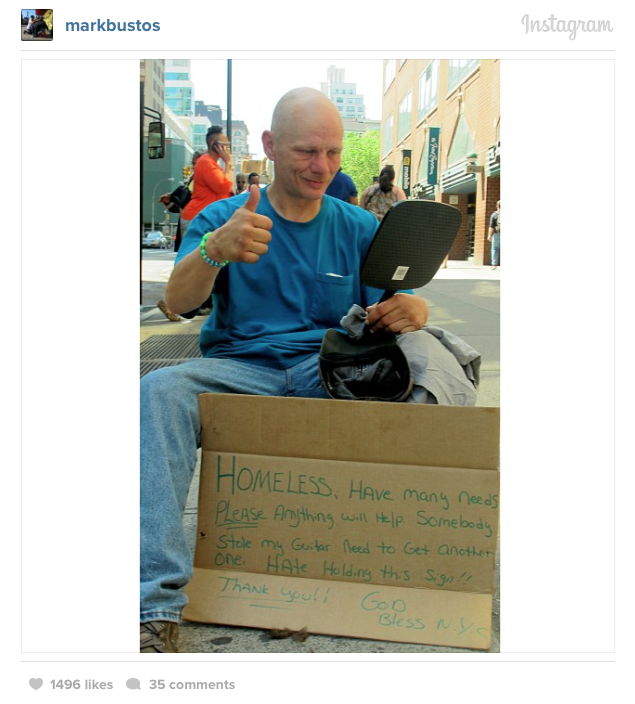 markbustos
Instagram
HOMELESS. HAve many Needs
PLeASe Anything will Help. Somebody
Stole my Guitar Need to Get another
one. HAte Holding this Sign!!
THANK you!!
GoD
Bless N.Y.C
1496 likes 35 comments